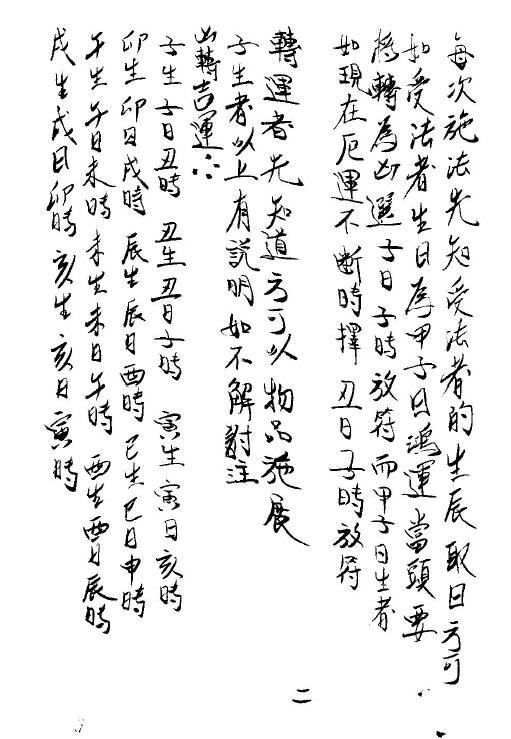 每次施法先知受法者的生辰取日方可
如受法者生日為甲子日鴻運當頭要
將轉為凶選子日子時放符而甲子日生者
如現在厄運不斷時擇丑日子時放符
轉運者先知道方可以物品施展
子生者以上有説明如不解對注
凶轉吉運∴
子生子日丑時 丑生丑日子時 寅生寅日亥時
卯生卯日戌時 辰生辰日酉時 巳生巳日申時
午生午日未時 未生未日午時 酉生酉日辰時
戌生戌日卯時 亥生亥日寅時
二